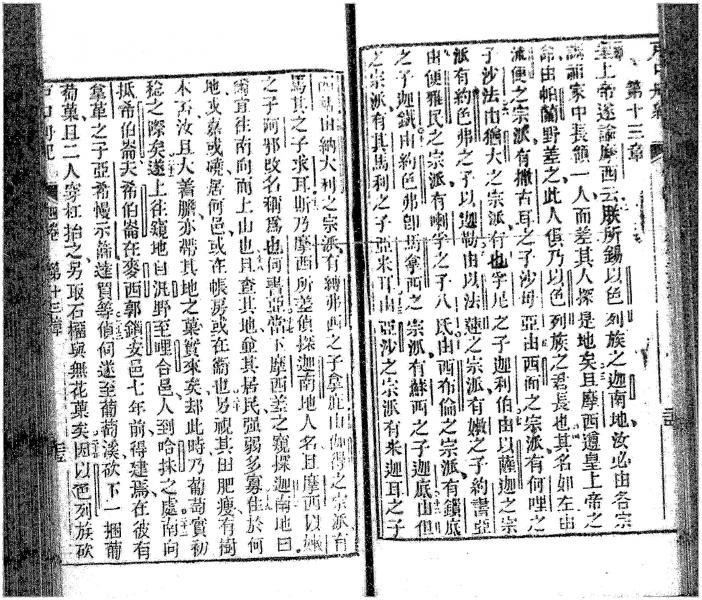 第十三章
皇上帝遂諭摩西云朕所錫以色列族之迦南地汝必由各宗
家中長領一人而差其人探是地矣且摩西遵皇上帝之
命由帕蘭野差之此人俱乃以色列族之君長也其名如左由
流便之宗派有撒古耳之子沙母亞由西面之宗派有何哩之
子沙法由猶大之宗派有也孚尼之子迦利伯由以薩迦之宗
派有約色弗之子以迦勒由以法蓮之宗派有嫩之子約書亞
由便雅民之宗派有喇孚之子八氏由西布倫之宗派有鎖底
之子迦鐵由約色弗即馬拿西之宗派有蘇西之子迦底由但
之宗派有其馬利之子亞米耳由亞沙之宗派有米迦耳之子
西帖由納大利之宗派有縛弗西之子拿庇由伽得之宗派有
馬其之子求耳斯乃摩西所差偵探迦南地人名且摩西以嫩
之子阿耶改名稱為也何書亞當下摩西差之窺探迦南地曰
爾直往南向而上山也且查其地並其居民强弱多寡住於何
地或嘉或磽居何邑或在帳房或在衞也另視其田肥瘦有樹
木否汝且大着膽亦帶其地之菓實來矣却此時乃葡萄實初
稔之際矣遂上往窺地自汛野至哩合邑人到哈抹之處南向
抵希伯崙夫希伯崙在麥西郭鎖安邑七年前得建焉在彼有
拿革之子亞希慢示篩達買等偵伺遂至葡萄溪砍下一捆葡
萄菓且二人穿杠抬之另取石榴與無花菓矣因以色列族砍
戶口冊紀
四卷
第十三章